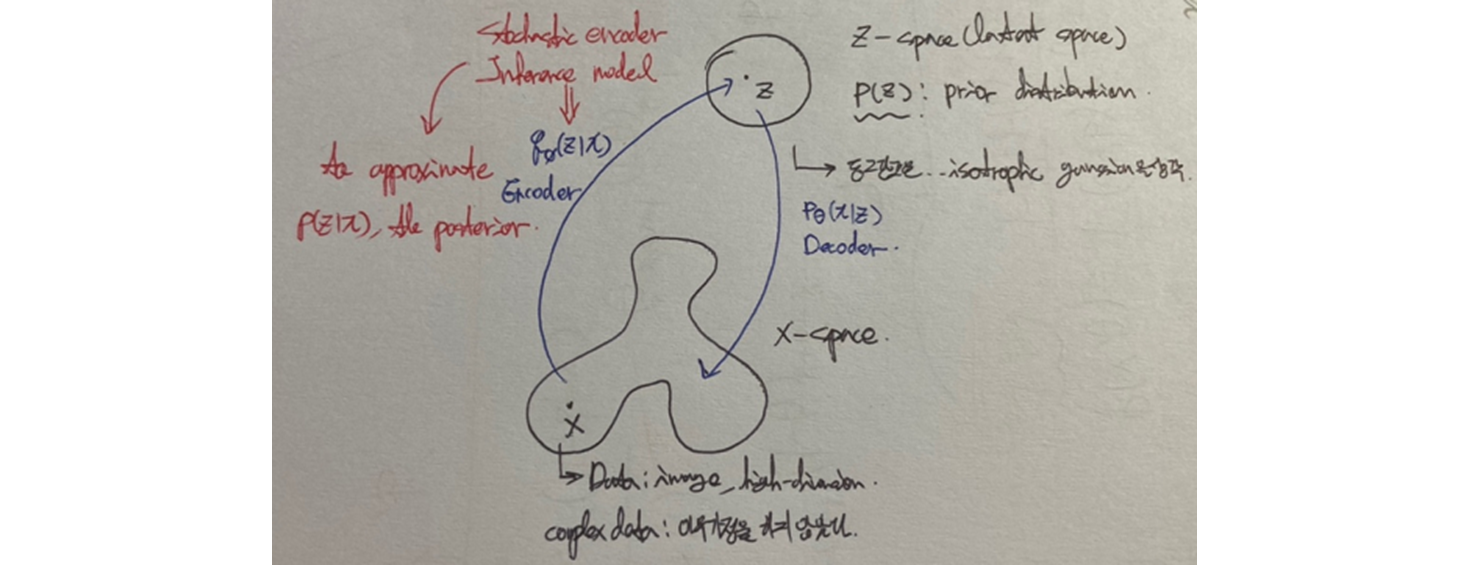 Stochastic encoder
Inference model
to approximate
p(z|x), the posterior.
qφ(z|x)
Encoder
z
Z-space (latent space)
P(z): prior distribution.
isotrophic gaussian
Pθ(x|z)
Decoder.
X-space.
x
Data: image, high-dimension.
complex data: